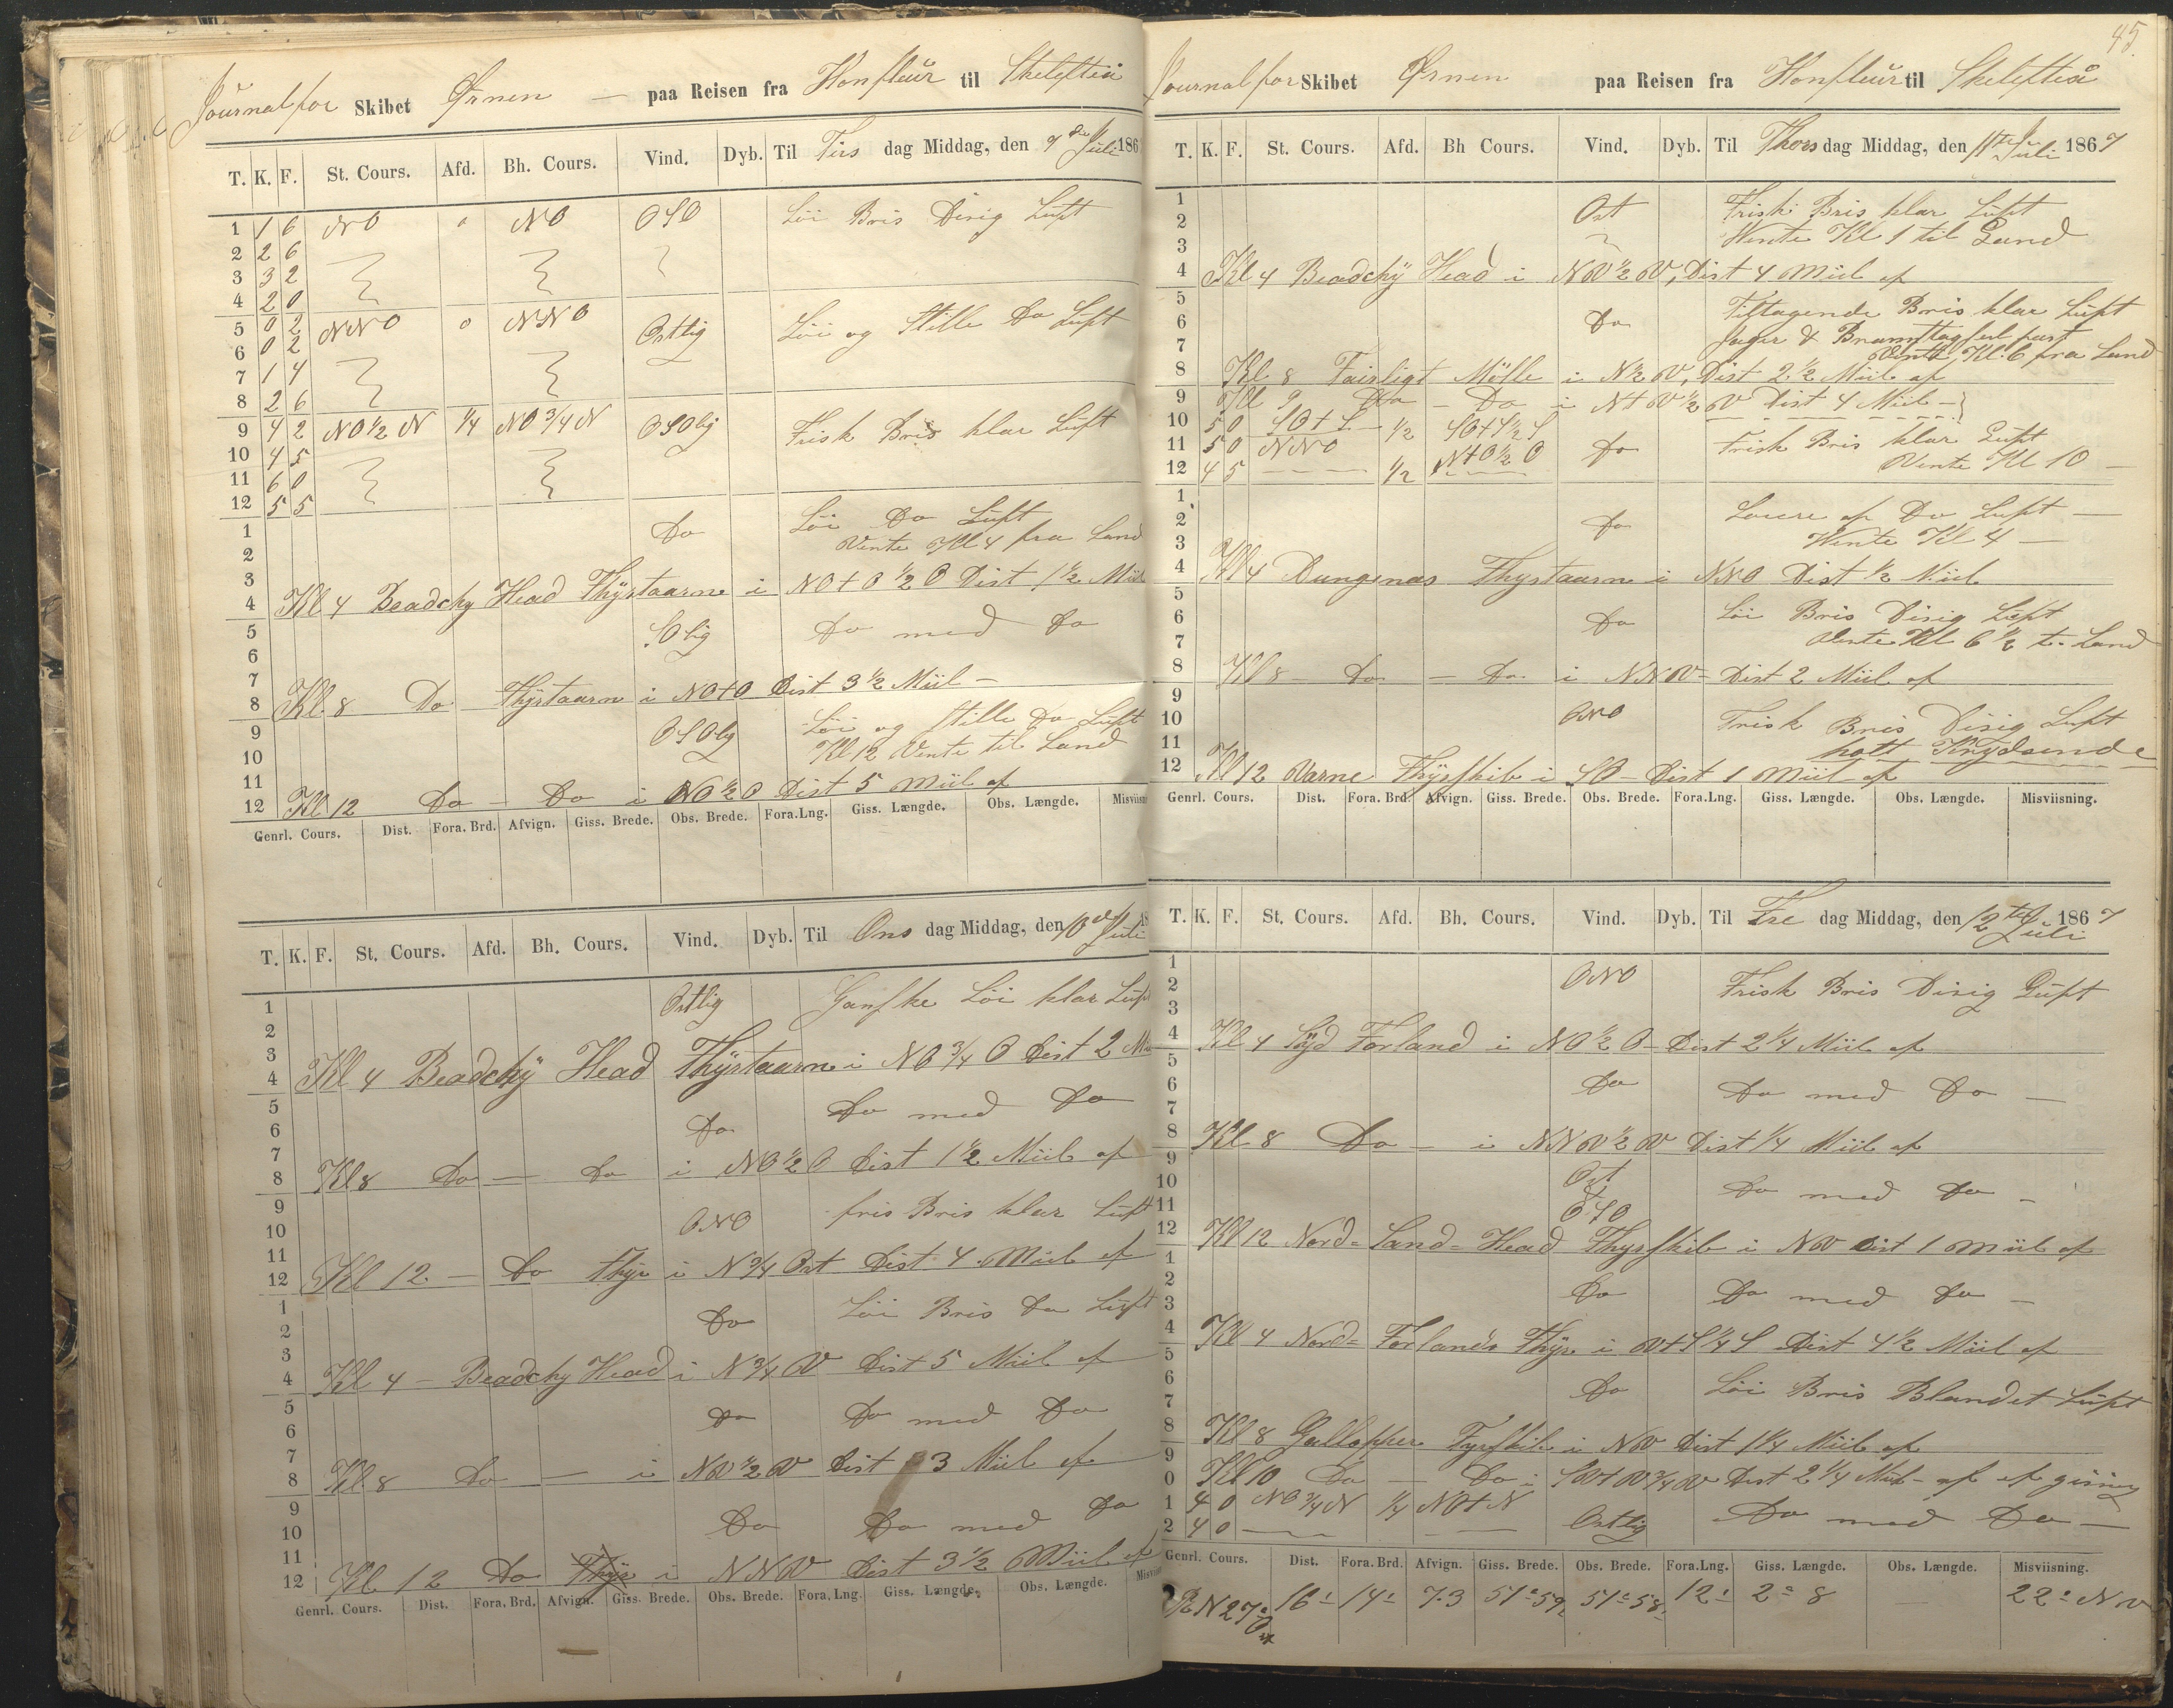 Journal for Skibet Ørnen — paa Reisen fra Honfleur til Skelefteå
T. K. F. St. Cours. Afd. Bh. Cours. Vind. Dyb. Til Tirs dag Middag, den 9de Juli 186
1 1 6 NO 0 NO OSO Löi Bris Disig Luft
2 2 6
3 3 2
4 2 0
5 0 2 NNO 0 NNO Ostlig Löi og Stille Do Luft
6 0 2
7 1 4
8 2 6
9 4 2 NO 1/2 N 1/4 NO 3/4 N OSOlig Frisk Bris klar Luft
10 4 5
11 6 0
12 5 5
1 Do Löi Do Luft
2 Vente Kl 4 fra Land
3
4 Kl 4 Beadchy Head Thyrtaarn i NO+O 1/2 O Dist 1 1/2 Miil
5 SOlig Do med Do
6
7
8 Kl. 8 Do Thyrtaarn i NO+O Dist 3 1/2 Miil —
9 OSOlig Löi og Stille Do Luft
10 Kl 12 Vente til Land
11
12 Kl 12 Do — Do i NO 1/2 O Dist 5 Miil af
Genrl. Cours. Dist. Fora. Brd. Afvign. Giss. Brede. Obs. Brede. Fora. Lng. Giss. Længde. Obs. Længde. Misviisn
T. K. F. St. Cours. Afd. Bh. Cours. Vind. Dyb. Til Ons dag Middag, den 10de Juli 18
1 Ostlig Ganske Löi klar Luft
2
3
4 Kl 4 Beadchÿ Head Thyrtaarn i NO 3/4 O Dist 2 Mi
5 Do Do med Do
6
7
8 Kl 8 Do — Do i NO 1/2 O Dist 1 1/2 Miil af
9 ONO fris Bris klar Luft
10
11
12 Kl 12 — Do Thyr i N 3/4 Ost Dist 4 Miil af
1 Do Löi Bris Do Luft
2
3
4 Kl 4 — Beadchy Head i N 3/4 V Dist 5 Miil af
5 Do Do med Do
6
7
8 Kl 8 Do — i NV 1/2 V Dist 3 Miil af
9 Do Do med Do
10
11
12 Kl 12 Do Thyr i NNV Dist 3 1/2 Miil af
Genrl. Cours. Dist. Fora. Brd. Afvign. Giss. Brede. Obs. Brede. Fora. Lng. Giss. Længde. Obs. Længde. Misvii
45.
Journal for Skibet Ørnen paa Reisen fra Honfleur til Skelefteå
T. K. F. St. Cours. Afd. Bh Cours. Vind. Dyb. Til Thors dag Middag, den 11te Juli 1867
1 Ost Frisk Bris klar Luft
2 Vente Kl 1 til Land
3
4 Kl 4 Beadchÿ Head i NV 1/2 V, Dist 4 Miil af
5 Tiltagende Bris klar Luft
6 Do Jager & Bramstagseil fast
7 Vente Kl. 6 fra Land
8 Kl. 8 Fairligt Mölle i N 1/2 V, Dist 2 1/2 Miil af
9 Kl 9 Do — Do i N+V 1/2 V Dist 4 Miil —
10 5 0 SO+S 1/2 SO+S 1/2 S
11 5 0 NNO N+O 1/2 O Do Frisk Bris klar Luft
12 4 5 1/2 Vente Kl 10 —
1 Laere af Do Luft —
2 Do Vente Kl 4 —
3
4 Kl 4 Dungenas Thyrtaarn i NNO Dist 1/2 Miil
5 Löi Bris Disig Luft
6 Do Vente Kl 6 1/2 t. Land
7
8 Kl 8 — Do — Do i NNV = Dist 2 Miil af
9 ONO Frisk Bris Disig Luft
10
11 Krydsende
12 Kl 12 Varne Thyrskib i SO — Dist 1 Miil af
Genrl. Cours. Dist. Fora. Brd. Afvign. Giss. Brede. Obs. Brede. Fora. Lng. Giss. Længde. Obs. Længde. Misviisning.
T. K. F. St. Cours. Afd. Bh. Cours. Vind. Dyb. Til Fre dag Middag, den 12te Juli 1867
1 ONO Frisk Bris Disig Luft
2
3
4 Kl 4 Syd Forland i NO 1/2 O — Dist 2 1/4 Miil af
5
6 Do Do med Do —
7
8 Kl. 8 Do — i NNV 1/2 V Dist 1/4 Miil af
9
10 Ost Do med Do —
11 OSO
12 Kl 12 Nord = Sand = Head Thyrskib i NV Dist 1 Miil af
1
2 Do Do med Do —
3
4 Kl 4 Nord = Forlands Thyr i V+S 1/4 S Dist 4 1/2 Miil af
5
6 Do Löi Bris Blandet Luft
7
8 Kl 8 Gallopper Fyrskib i NV Dist 1 1/4 Miil af
9
0 Kl 10 Do — Do i SV+V 3/4 V Dist 2 1/4 Miil — af af gisning
1 4 0 NO 3/4 N 1/4 NO+N
2 4 0 Ostlig Do med Do —
Genrl. Cours. Dist. Fora. Brd. Afvign. Giss. Brede. Obs. Brede. Fora. Lng. Giss. Længde. Obs. Længde. Misviisning.
R N 27° O 16 14 7.3 51° 59 51° 58 12 2° 8 — 22° NV